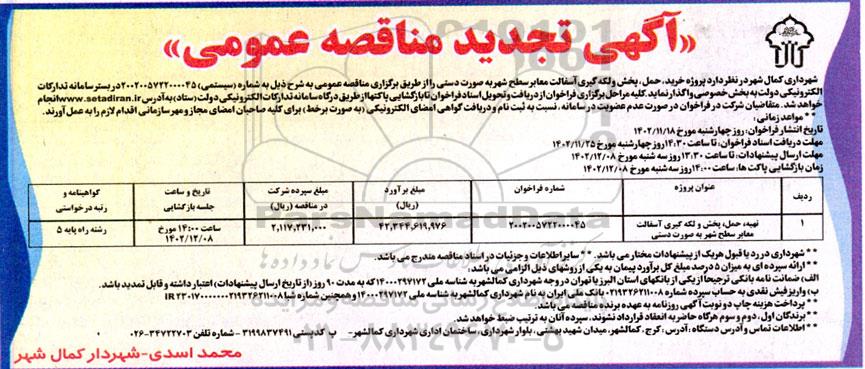 «آگهی تجدید مناقصه عمومی»
شهرداری کمال شهر در نظر دارد پروژه خرید، حمل، پخش و لکه گیری آسفالت معابر سطح شهر به صورت دستی را از طریق برگزاری مناقصه عمومی به شرح ذیل به شماره (سیستمی) ۲۰۰۲۰۰۵۷۲۲۰۰۰۰۴۵ در بستر سامانه تدارکات
الکترونیکی دولت به بخش خصوصی واگذار نماید. کلیه مراحل برگزاری فراخوان از دریافت و تحویل اسناد فراخوان تا بازگشایی پاکتها از طریق درگاه سامانه تدارکات الکترونیکی دولت (ستاد) به آدرس www.setadiran.ir انجام
خواهد شد. متقاضیان شرکت در فراخوان در صورت عدم عضویت در سامانه، نسبت به ثبت نام و دریافت گواهی امضای الکترونیکی (به صورت برخط) برای کلیه صاحبان امضای مجاز و مهر سازمانی اقدام لازم را به عمل آورند.
** مواعد زمانی:
تاریخ انتشار فراخوان: روز چهارشنبه مورخ ۱۴۰۲/۱۱/۱۸
مهلت دریافت اسناد فراخوان: تا ساعت ۱۴:۳۰ روز چهارشنبه مورخ ۱۴۰۲/۱۱/۲۵
مهلت ارسال پیشنهادات: تا ساعت ۱۳:۳۰ روز سه شنبه مورخ ۱۴۰۲/۱۲/۰۸
زمان بازگشایی پاکت ها: ساعت ۱۴:۰۰ روز سه شنبه مورخ ۱۴۰۲/۱۲/۰۸
ردیف عنوان پروژه شماره فراخوان مبلغ برآورد (ریال) مبلغ سپرده شرکت در مناقصه (ریال) تاریخ و ساعت جلسه بازگشایی گواهینامه و رتبه درخواستی
۱ تهیه، حمل، پخش و لکه گیری آسفالت معابر سطح شهر به صورت دستی ۲۰۰۲۰۰۵۷۲۲۰۰۰۰۴۵ ۴۲,۳۴۴,۶۱۹,۹۷۶ ۲,۱۱۷,۲۳۱,۰۰۰ ساعت ۱۴:۰۰ مورخ ۱۴۰۲/۱۲/۰۸ رشته راه پایه ۵
** شهرداری در رد یا قبول هر یک از پیشنهادات مختار می باشد. ** سایر اطلاعات و جزئیات در اسناد مناقصه مندرج می باشد.
** ارائه سپرده ای به میزان ۵ درصد مبلغ کل برآورد پیمان به یکی از روشهای ذیل الزامی می باشد:
الف) ضمانت نامه بانکی ترجیحا از یکی از بانکهای استان البرز یا تهران در وجه شهرداری کمالشهر به شناسه ملی ۱۴۰۰۰۲۹۷۱۷۲ که به مدت ۹۰ روز (از تاریخ ارسال پیشنهادات) اعتبار داشته و قابل تمدید باشد.
ب) واریز فیش نقدی به حساب سپرده شماره ۲۱۹۳۲۶۲۱۱۰۰۸ بانک ملی ایران به نام شهرداری کمالشهر به شناسه ملی ۱۴۰۰۰۲۹۷۱۷۲ و همچنین شماره شبا
** پرداخت هزینه چاپ دو نوبت آگهی روزنامه به عهده برنده مناقصه می باشد.
** برندگان اول، دوم و سوم هرگاه حاضر به انعقاد قرارداد نشوند، سپرده آنان به ترتیب ضبط خواهد شد.
** اطلاعات تماس و آدرس دستگاه: آدرس: کرج، کمالشهر، میدان شهید بهشتی، بلوار شهرداری، ساختمان اداری شهرداری کمالشهر- پ کدپستی ۳۱۹۹۸۳۷۴۹۱ - شماره تلفن ۳۴۷۲۲۷۰۳-۰۲۶
محمد اسدی-شهردار کمال شهر
ParsNamadData
۰۲۱-۸۸۳۴۹۶۷۰-۵